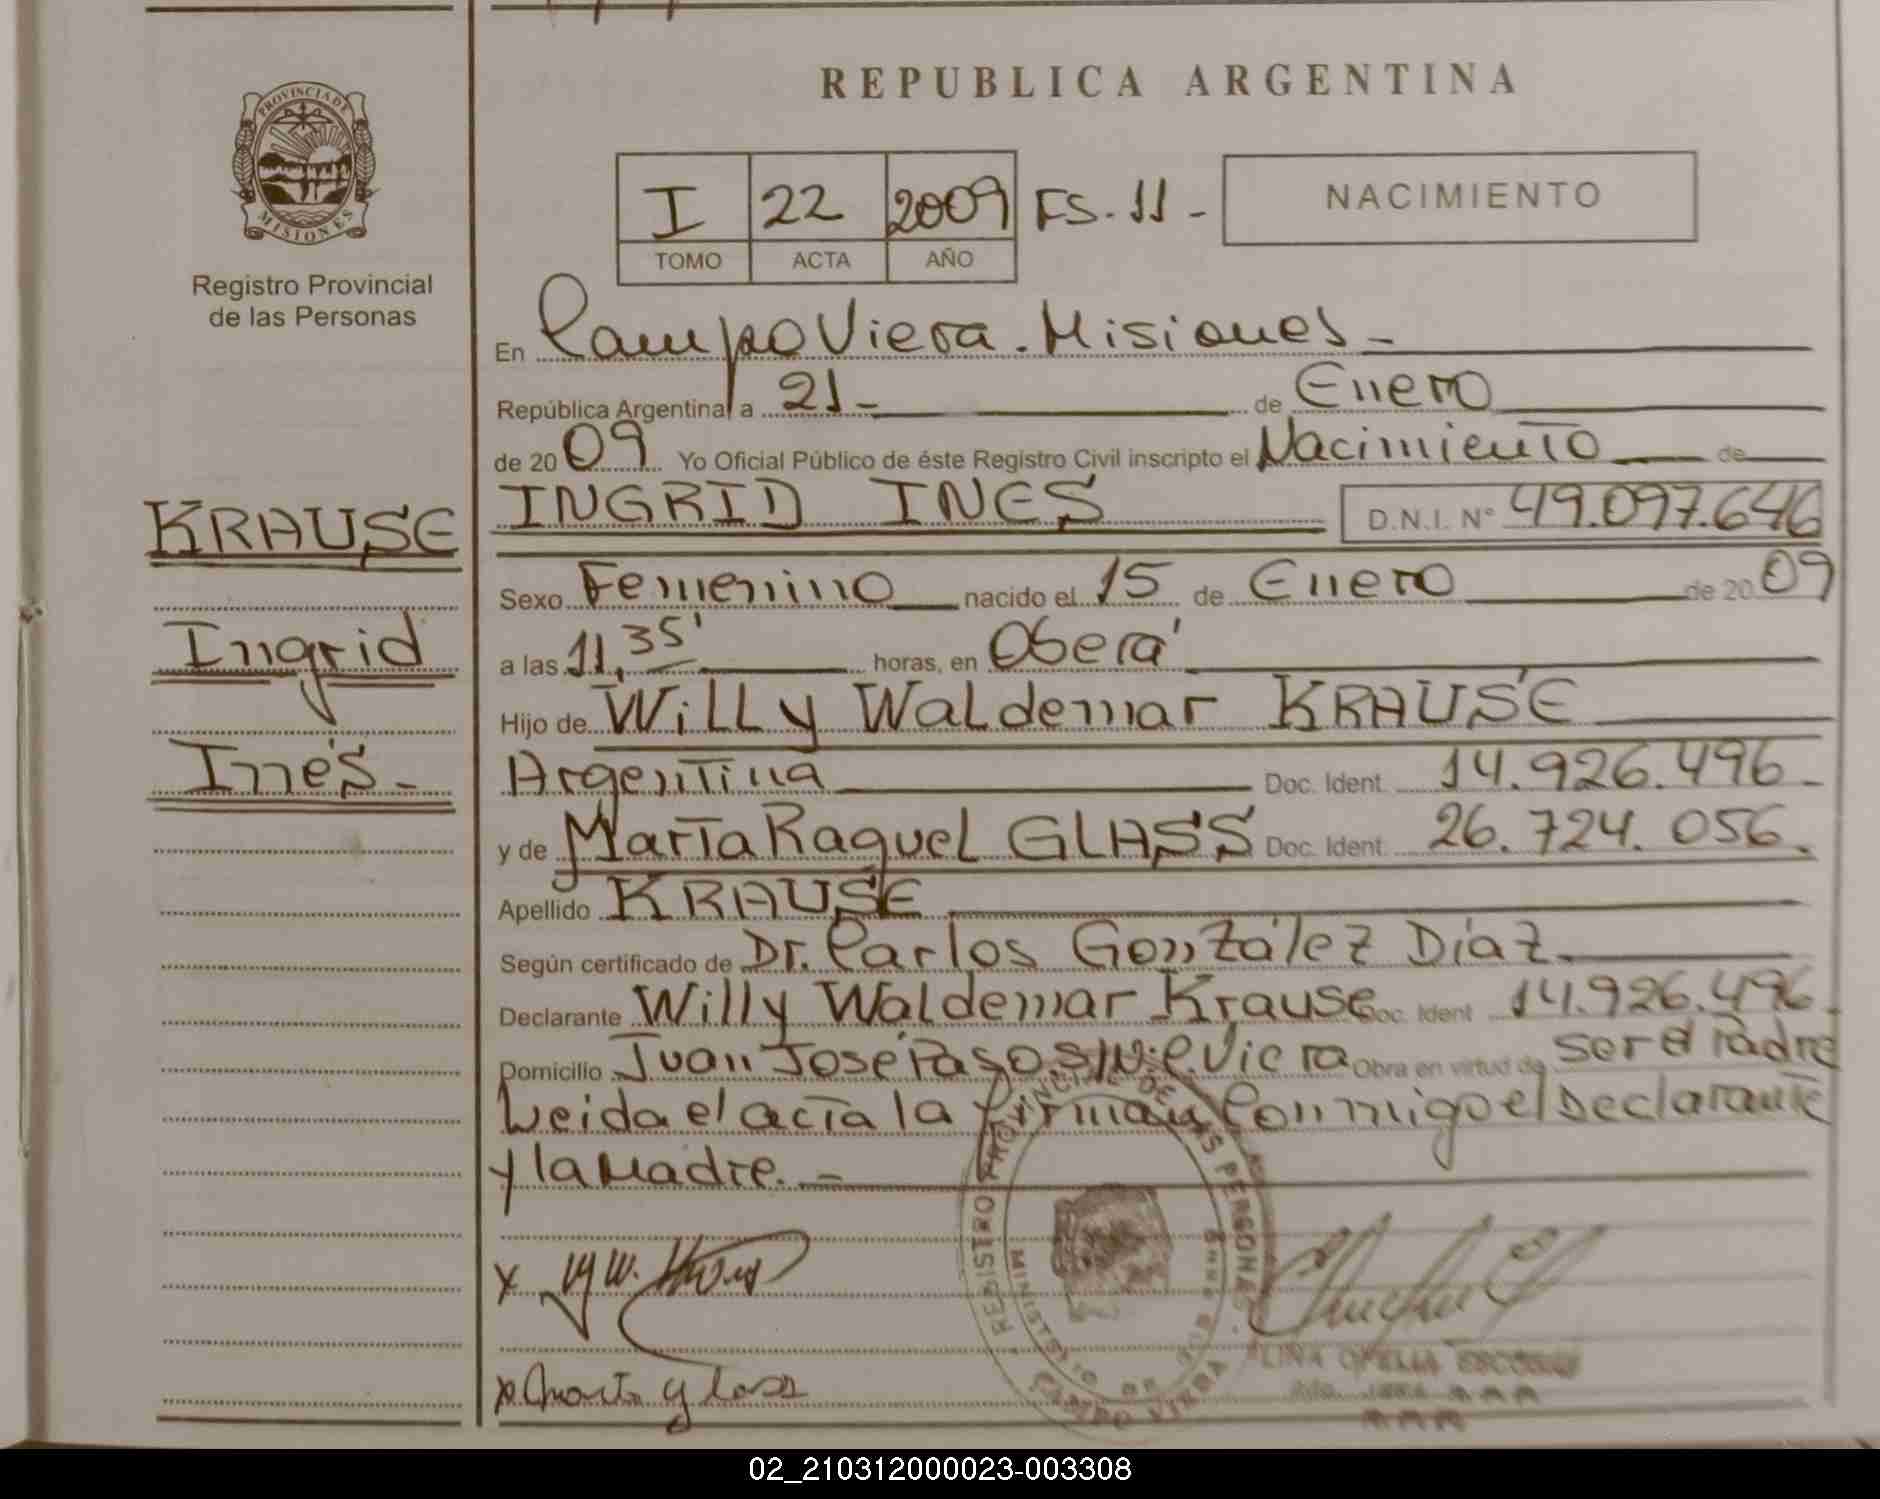 REPUBLICA ARGENTINA
PROVINCIA DE
MISIONES
Registro Provincial
de las Personas
I 22 2009 FS. 11 -
TOMO ACTA AÑO
NACIMIENTO
En Campo Viera. Misiones -
República Argentina a 21 - de Enero
de 2009 Yo Oficial Público de éste Registro Civil inscripto el Nacimiento de
KRAUSE
INGRID INES D.N.I. N° 49.097.646
Sexo Femenino nacido el 15 de Enero de 2009
Ingrid
a las 11,35' horas, en Oberá
Hijo de Willy Waldemar KRAUSE
Inés -
Argentina Doc. Ident. 14.926.496 -
y de Marta Raquel GLASS Doc. Ident. 26.724.056.
Apellido KRAUSE
Según certificado de Dr. Carlos González Díaz
Declarante Willy Waldemar Krause Doc. Ident 14.926.496.
Domicilio Juan José Paso S/N: C. Viera Obra en virtud de ser el Padre
Leida el acta la firman Conmigo el Declarante
y la Madre. -
REGISTRO PROVINCIAL DE LAS PERSONAS
MINISTERIO DE
CAMPO VIERA
x
x Marta glass
OFELIA
02_210312000023-003308